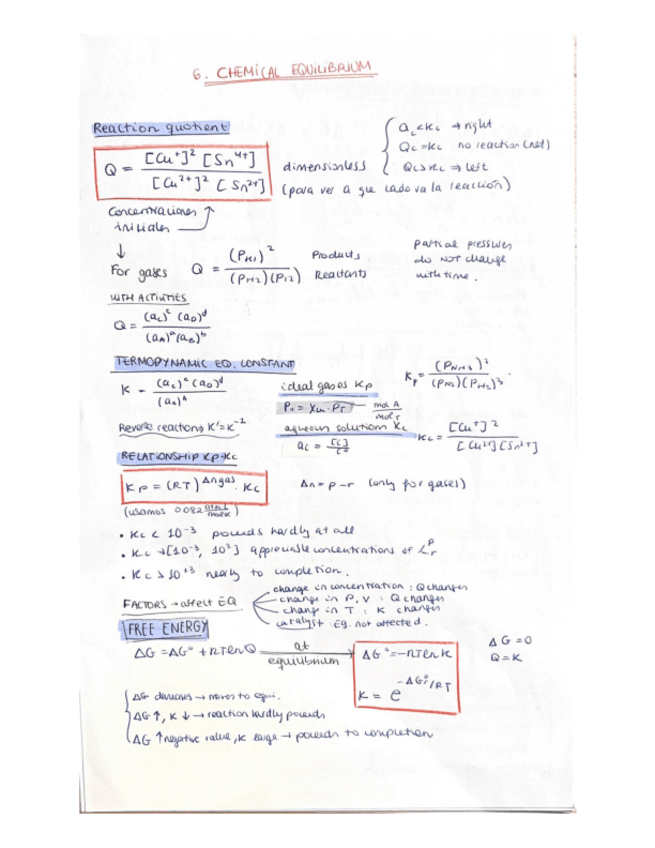 6. CHEMICAL EQUILIBRIUM
Reaction quotient
Q = [Cu⁺]² [Sn⁴⁺] / [Cu²⁺]² [Sn²⁺]
dimensionless
(para ver a que lado va la reacción)
Qc < Kc → right
Qc = Kc no reaction (net)
Qc > Kc → left
Concentraciones
iniciales
↓
For gases Q = (P_HI)² / (P_H2)(P_I2)
Products
Reactants
Partial pressures
do NOT change
with time.
WITH ACTIVITIES
Q = (a_C)^c (a_D)^d / (a_A)^a (a_B)^b
TERMODYNAMIC EQ. CONSTANT
K = (a_C)^c (a_D)^d / (a_A)^a
ideal gases Kp
Kp = (P_NH3)² / (P_N2)(P_H2)³
mol A / mol T
Reverse reaction → K' = K⁻¹
aqueous solutions Kc
Kc = [Cu⁺]² / [Cu²⁺][Sn²⁺]
RELATIONSHIP Kp-Kc
Kp = (RT)^Δn gas · Kc
Δn = p - r (only for gases)
(usamos 0'082 )
• Kc < 10⁻³ proceeds hardly at all
• Kc → [10⁻³, 10³] appreciable concentrations of p r
• Kc > 10⁺³ nearly to completion.
FACTORS → affect EQ
change in concentration : Q changes
change in P, V : Q changes
change in T : K changes
catalyst : Eq. not affected.
FREE ENERGY
ΔG = ΔG° + RT ln Q at equilibrium → ΔG° = -RT ln K
K = e^(-ΔG°/RT)
ΔG = 0
Q = K
ΔG decreases → moves to equi.
ΔG ↑, K ↓ → reaction hardly proceeds
ΔG ↑ negative value, K large → proceeds to completion